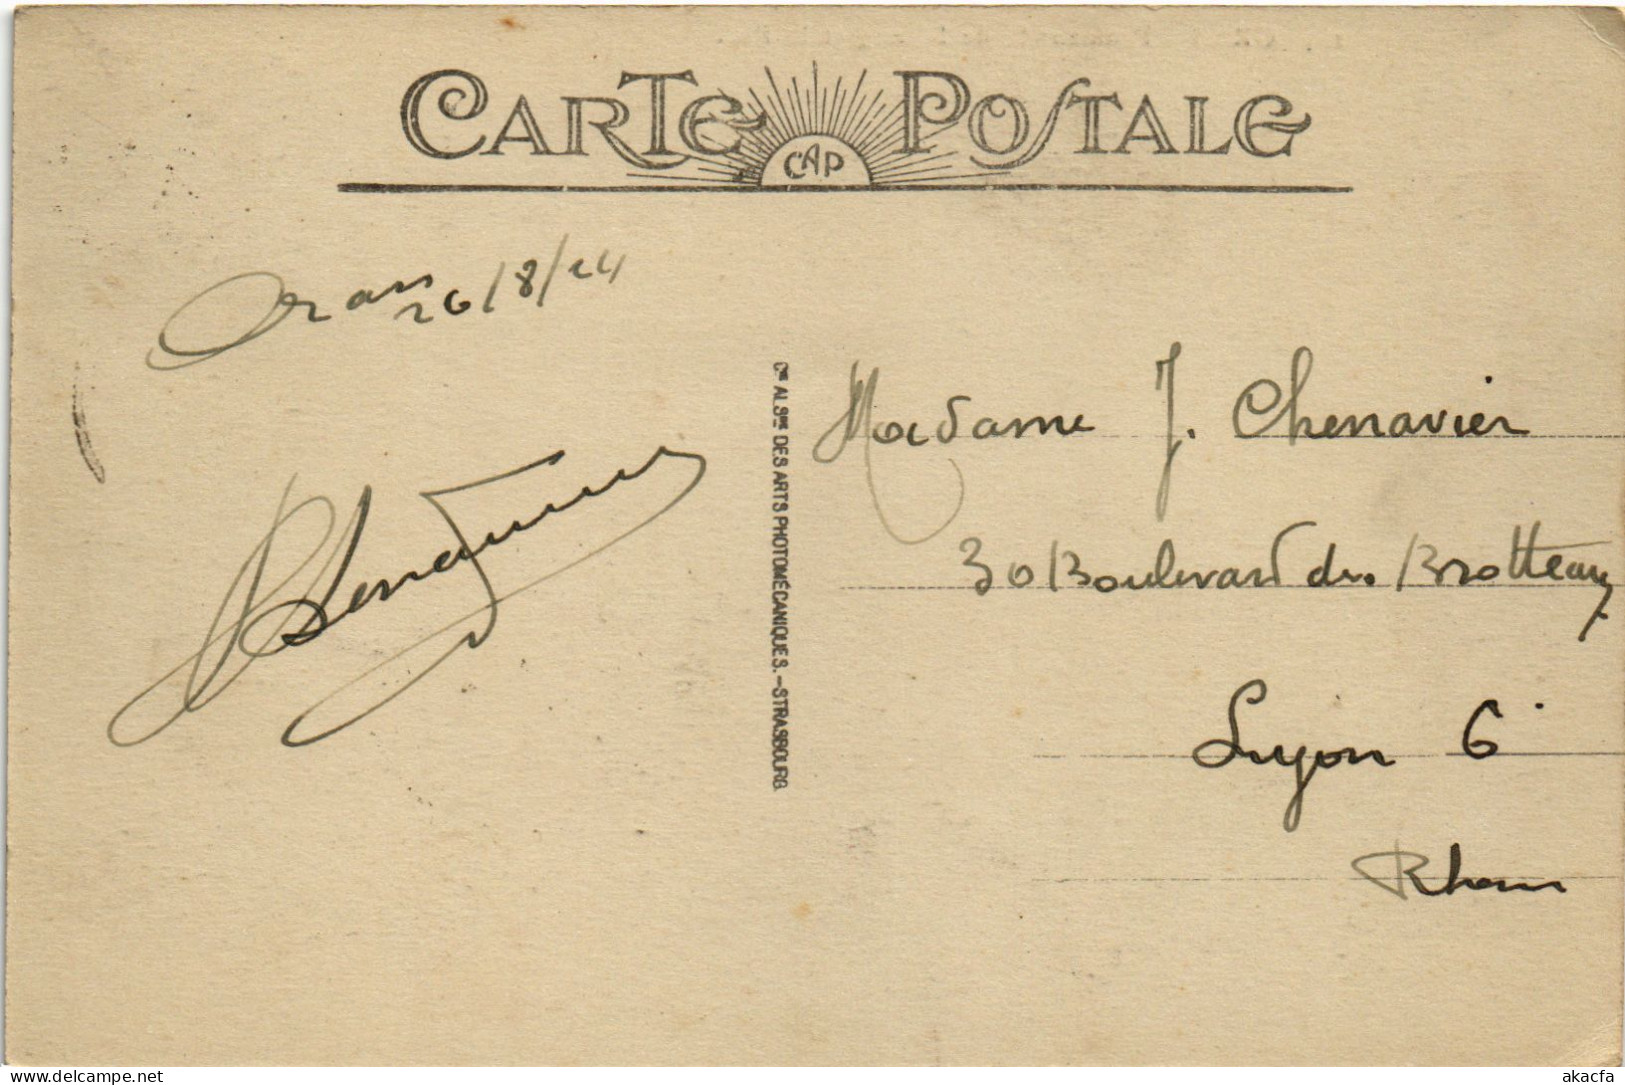 CARTE POSTALE
CAP
Oran 26/8/24
Cie ALSne DES ARTS PHOTOMÉCANIQUES.—STRASBOURG
Madame J. Chenavier
30 Boulevard des Brotteaux
Lyon 6e
Rhone
akacfa